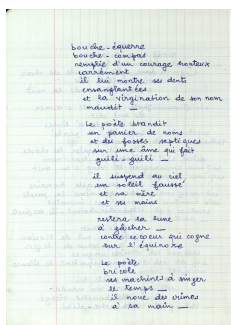 bouche-équerre
bouche-compas
remplie d'un courage honteux
carrément
il lui montre ses dents
ensanglantées
et la virgination de son nom
maudit _
Le poète brandit
un panier de noms
et des fosses septiques
sur une âme qui fait
guili-guili _
il suspend au ciel
un soleil faussé
et sa mère
et ses mains
restera la lune
à gâcher _
contre le cœur qui cogne
sur l'équinoxe
Le poète
bricole
ses machines à singer
le temps _
il noue des crimes
à sa main _